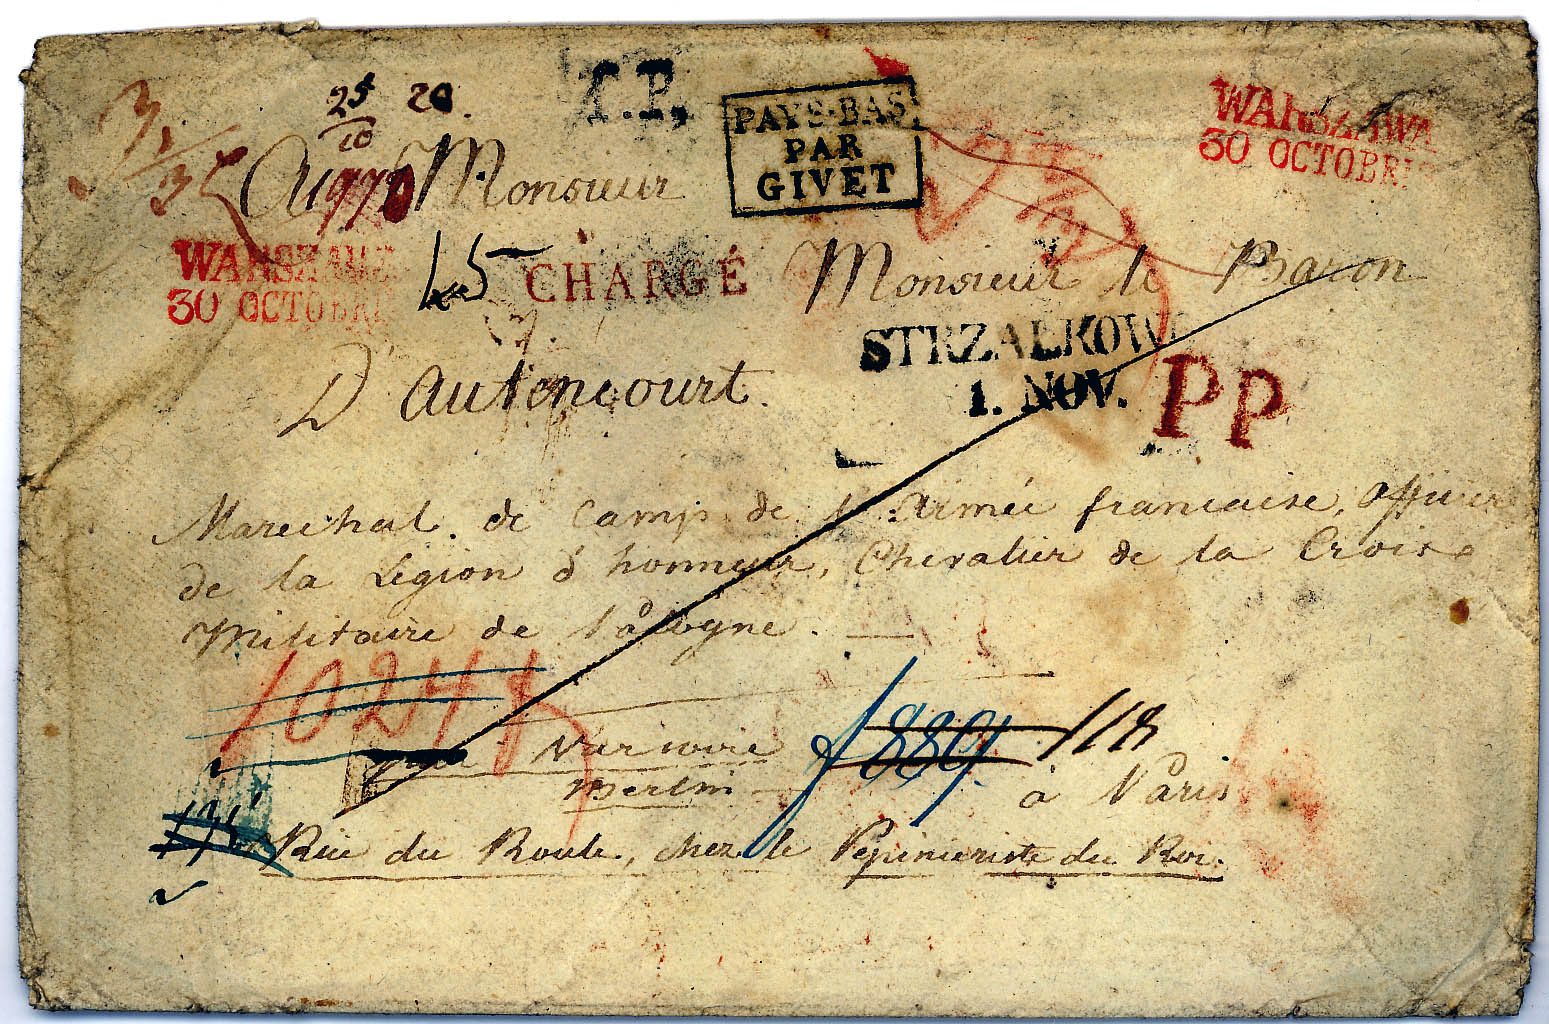 25 20.
10
T.P.
PAYS-BAS
PAR
GIVET
WARSZAWA
30 OCTOBRIS
35
A Monsieur
WARSZAWA
30 OCTOBRI
45
CHARGÉ
Monsieur le Baron
STRZALKOW
1. NOV.
PP
D'autencourt.
Marechal de Camp de l'Armée francaise, officier
de la Légion d'honneur, Chevalier de la Croix
Militaire de Pologne. —
10241
Varsovie
Berlin
889. 118
à Paris
Rüe du Roule, chez le Pepinieriste du Roi.